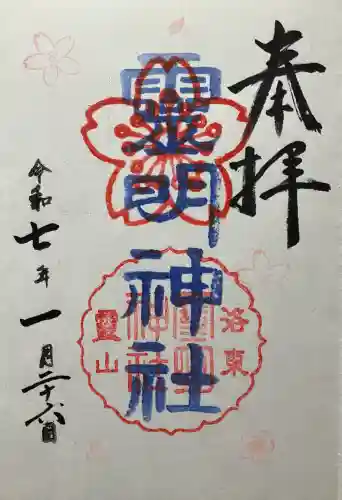 奉拝
靈明神社
洛東
靈明神社
靈山
令和七年一月二十六日